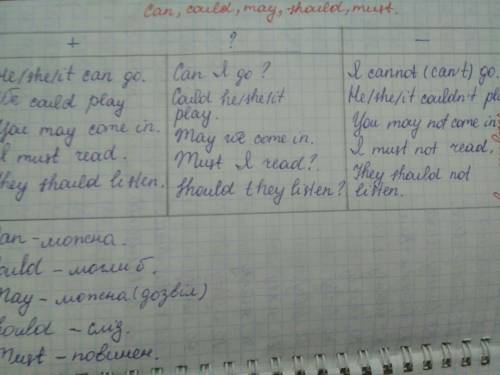 Can, could, may, should, must.
+
?
—
He/she/it can go.
We could play
You may come in.
I must read.
They should listen.
Can I go?
Could he/she/it
play.
May we come in.
Must I read?
Should they listen?
I cannot (can't) go.
He/she/it couldn't pl
You may not come in
I must not read.
They should not
listen.
Can – можна.
Could – могли б.
May – можна (дозвіл)
Should – слід.
Must – повинен.